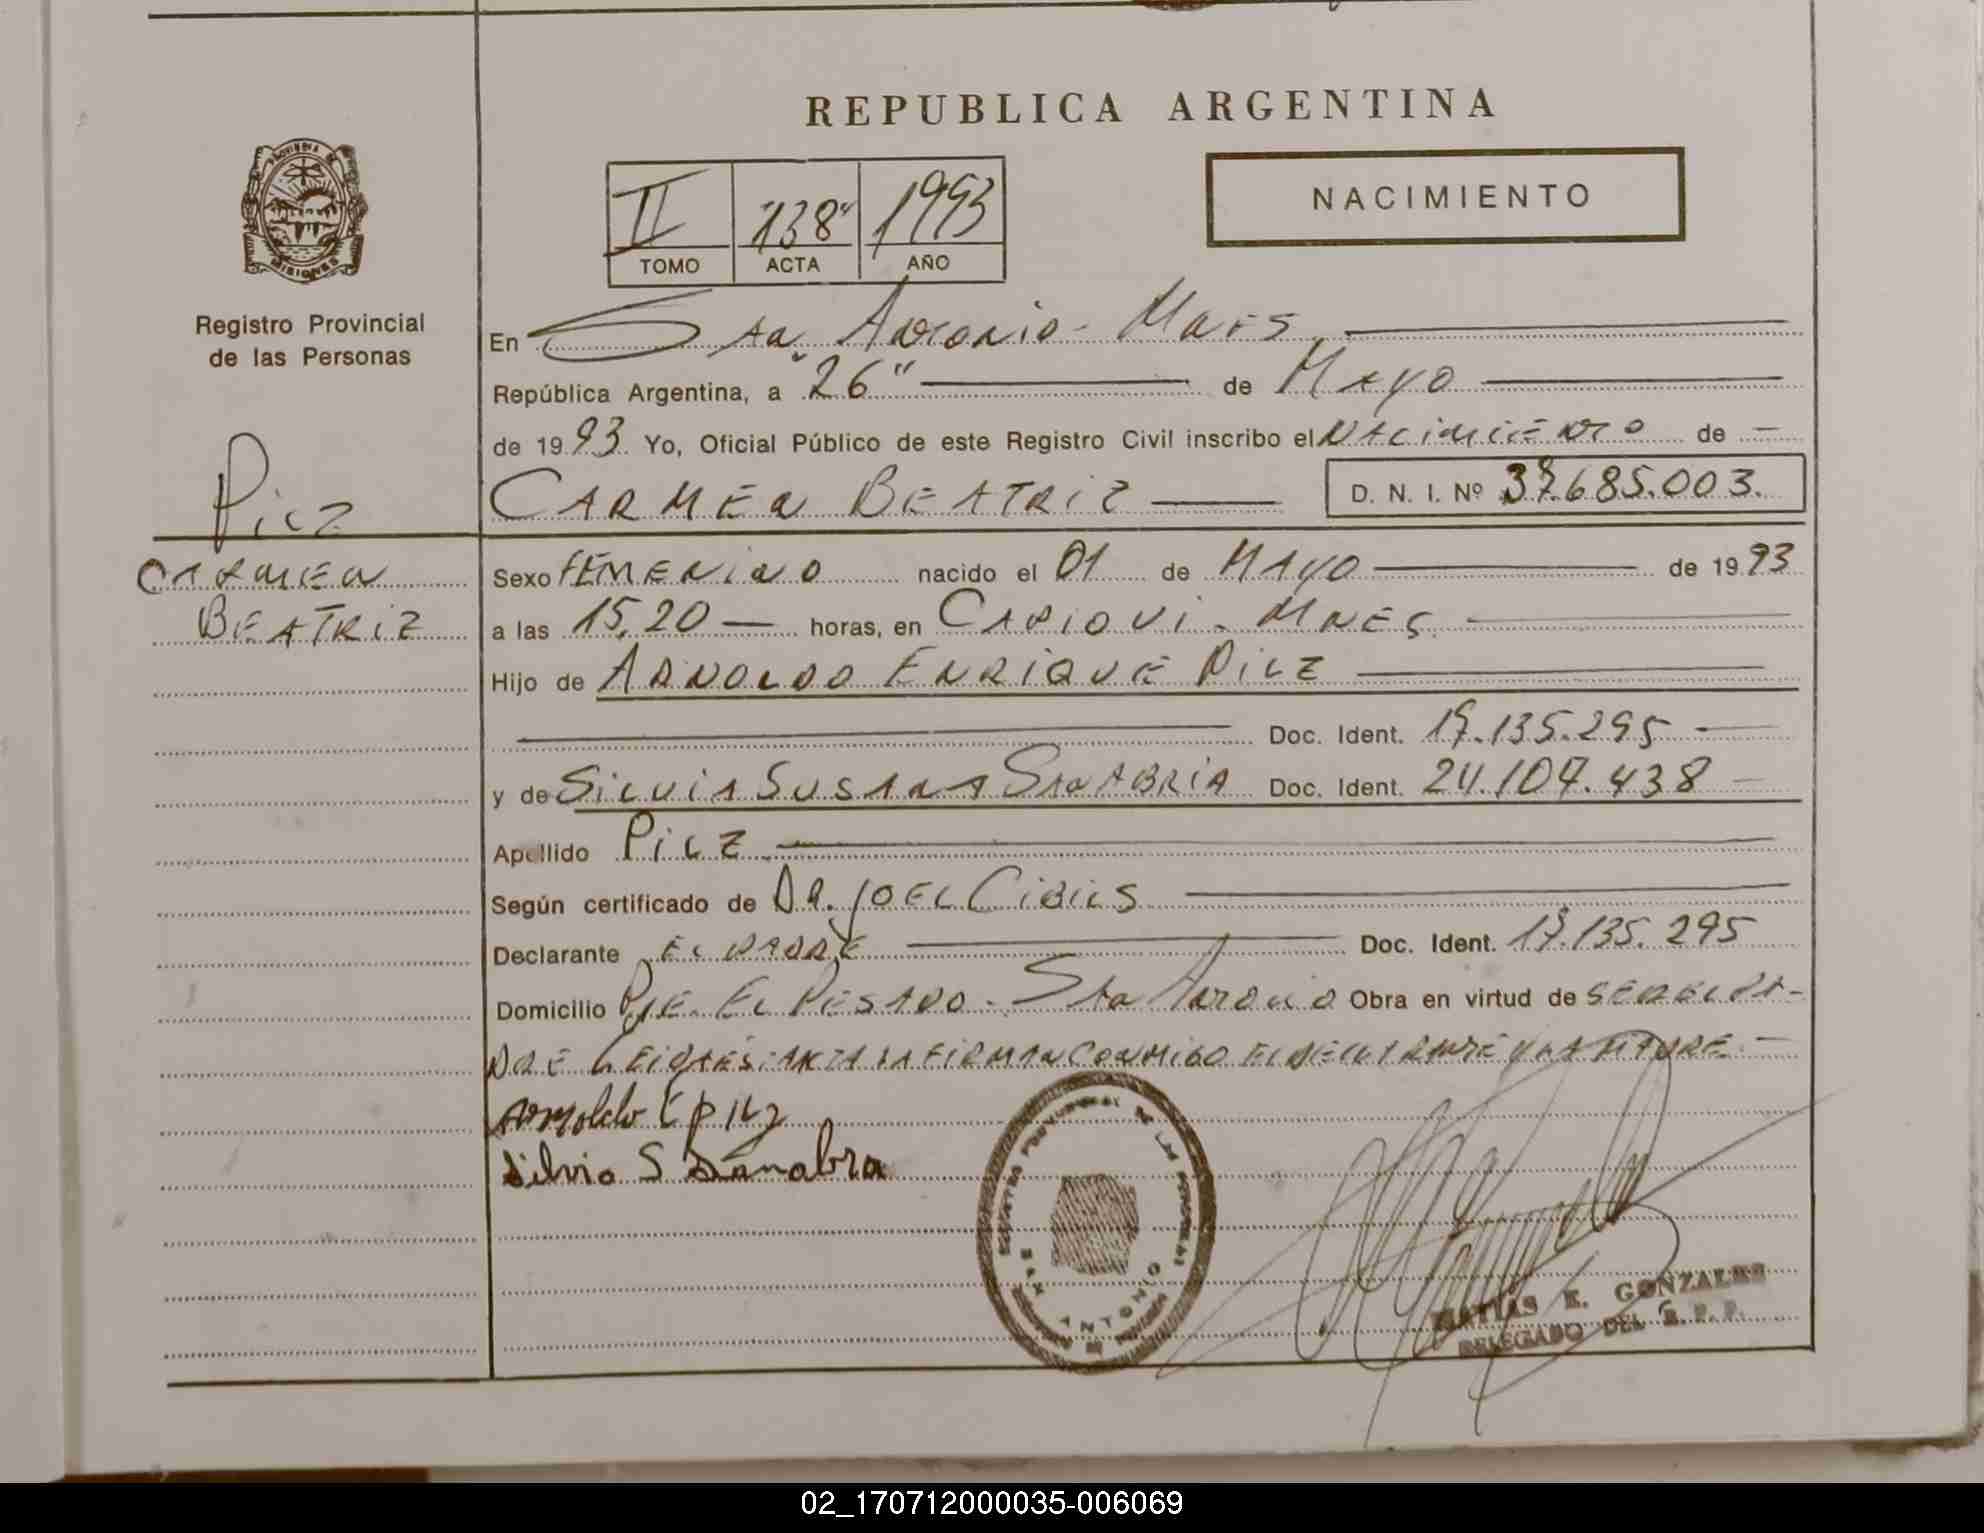 REPUBLICA ARGENTINA
PROVINCIA DE
MISIONES
Registro Provincial
de las Personas
II "138" 1993
TOMO ACTA AÑO
NACIMIENTO
En San Antonio - Mnes
República Argentina, a "26" de Mayo
de 1993 Yo, Oficial Público de este Registro Civil inscribo el NACIMIENTO de
CARMEN BEATRIZ D. N. I. Nº 37.685.003.
Pilz
CARMEN
BEATRIZ
Sexo FEMENINO nacido el 01 de MAYO de 1993
a las 15,20 horas, en CAPIOVI - MNES
Hijo de ARNOLDO ENRIQUE PILZ
Doc. Ident. 17.135.295
y de SILVIA SUSANA SANABRIA Doc. Ident. 24.107.438
Apellido PILZ
Según certificado de DR. JOEL CIBILS
Declarante EL PADRE Doc. Ident. 17.135.295
Domicilio PJE. EL PESADO - San Antonio Obra en virtud de SER EL PA-
DRE LEIDA ESTA ACTA LA FIRMAN CONMIGO EL DECLARANTE Y LA MADRE
Arnoldo E Pilz
Silvia S Sanabria
REGISTRO PROVINCIAL DE LAS PERSONAS
SAN ANTONIO
MATIAS E. GONZALEZ
DELEGADO DEL R. P. P.
02_170712000035-006069